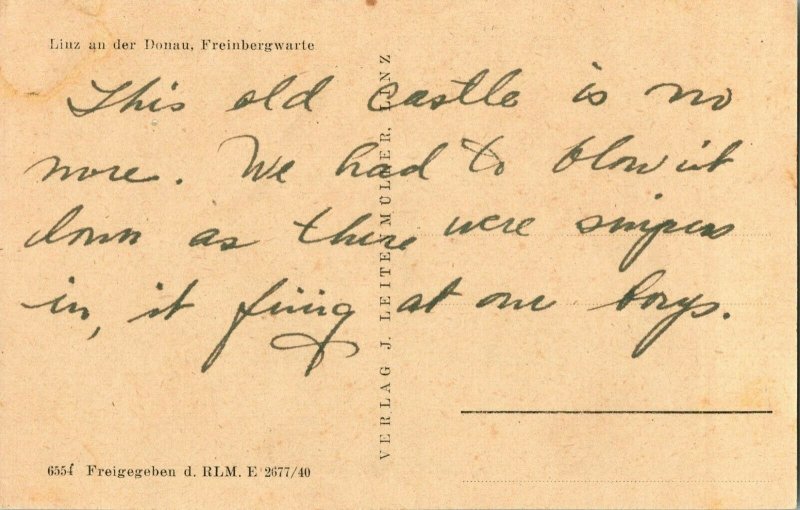 Linz an der Donau, Freinbergwarte
This old castle is no
more. We had to blow it
down as there were snipers
in, it firing at our boys.
VERLAG J. LEITENMÜLLER, LINZ
6554 Freigegeben d. RLM. E 2677/40